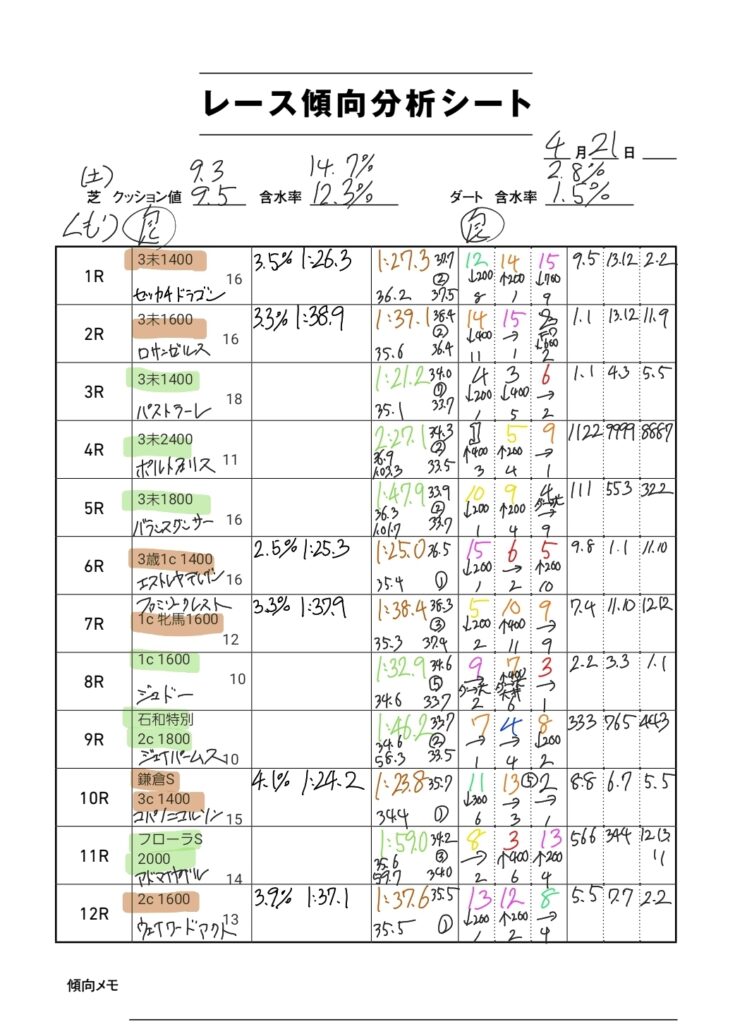 レース傾向分析シート
4月21日
(土) 9.3 14.7% 2.8%
芝 クッション値 9.5 含水率 12.3% ダート 含水率 1.5%
くもり 良 良
1R 3未1400 16 3.5% 1:26.3 1:27.3 37.7 12 14 15 9.5 13.12 2.2
② ↓200 ↑200 ↓700
セッカチドラゴン 36.2 37.5 8 1 9
2R 3未1600 16 3.3% 1:38.9 1:39.1 38.4 14 15 1.1 13.12 11.9
② ↓400 → ↓600
ロサンゼルス 35.6 36.4 11 1 2
3R 3未1400 18 1:21.2 34.0 4 3 6 1.1 4.3 5.5
↓200 ↓400 →
パストラーレ 35.1 33.7 1 5 2
4R 3未2400 11 2:27.1 34.3 5 9 1122 9999 8887
36.9 ② ↑400 ↑200 →
ポルトナリス 1:03.3 33.5 3 4 1
5R 3未1800 16 1:47.9 33.9 10 9 4 111 553 322
36.3 ② ↓200 ↑200 →
バランスダンサー 1:01.7 33.7 1 4 9
6R 3歳1c 1400 16 2.5% 1:25.3 1:25.0 36.5 15 6 5 9.8 1.1 11.10
↓200 → ↑200
35.4 ① 1 2 10
7R 1c 牝馬1600 12 3.3% 1:37.9 1:38.4 38.3 5 10 9 7.4 11.10 12.12
③ ↓200 ↑400 →
35.3 37.4 2 11 9
8R 1c 1600 10 1:32.9 34.6 9 7 3 2.2 3.3 1.1
⑤ → ↑400 →
ジュドー 34.6 33.7 2 6 1
9R 石和特別
2c 1800 10 1:46.2 33.7 7 4 8 333 765 443
34.6 ② → → ↓200
ジェイパームス 58.3 33.5 1 4 2
10R 鎌倉S
3c 1400 15 4.1% 1:24.2 1:23.8 35.7 11 13 ⑤2 8.8 6.7 5.5
↓300 → →
コパノニコルソン 34.4 ① 6 3 1
11R フローラS
2000 14 1:59.0 34.2 8 3 13 566 344 12.13.11
35.6 ③ → ↑400 ↑200
アドマイヤベル 59.7 34.0 2 6 4
12R 2c 1600 13 3.9% 1:37.1 1:37.6 35.5 13 12 8 5.5 7.7 2.2
↓200 ↑200 →
ウェイワードアクト 35.5 ① 1 2 4
傾向メモ